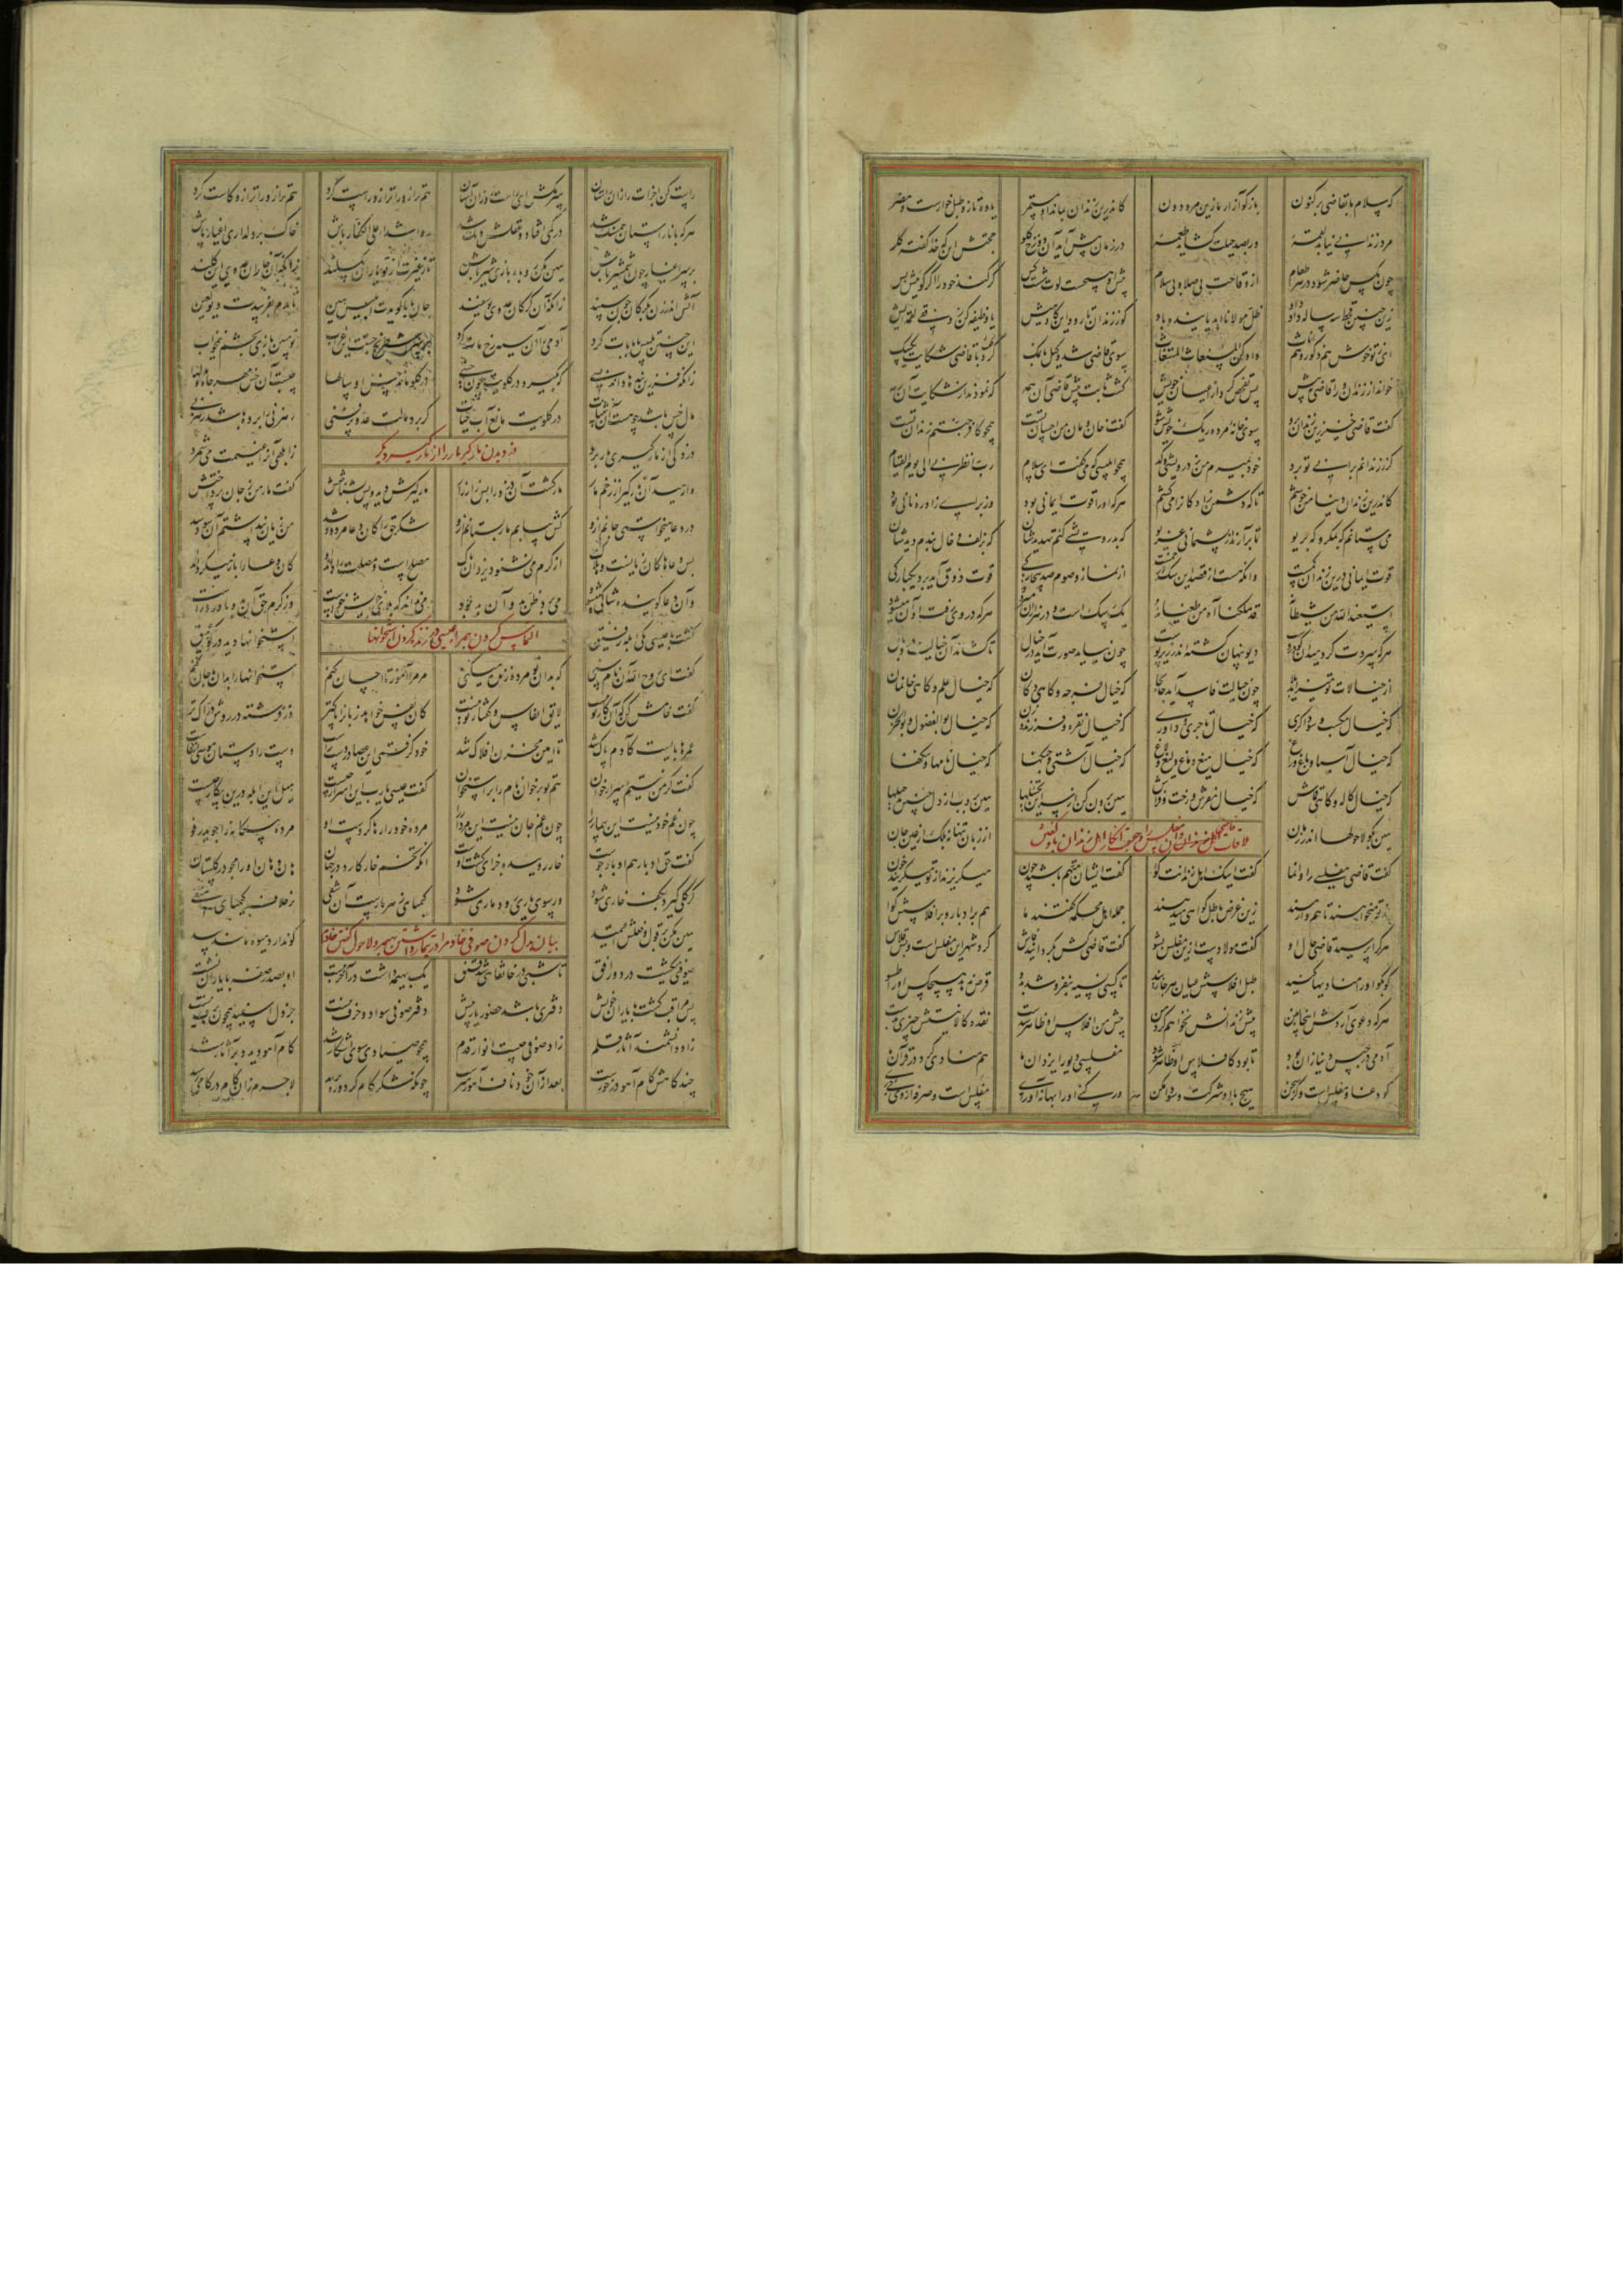 که سلام ما بقاضی بر کنون بازگو آزار ما زین مرد دون کاندرین زندان بماند او مستمر یاوه تاز و طبل خوارست و مضر
مرد زندانی نیابد لقمهٔ ور بصد حیلت گشاید طعمهٔ در زمان پیش آید آن دوزخ گلو حجتش این که خدا گفته کلو
چون مگس حاضر شود در هر طعام از وقاحت بی صلا و بی سلام پیش او هیچست لوت شصت کس کر کند خود را اگر گوییش بس
زین چنین قحط سه ساله داد داد ظل مولانا ابد پاینده باد گو ز زندان تا رود این گاومیش یا وظیفه کن ز وقفی لقمه ایش
ای ز تو خوش هم ذکور و هم اناث داد کن المستغاث المستغاث سوی قاضی شد وکیل با نمک کرد با قاضی شکایت یک بیک
خواند از زندان ورا قاضی پیش پس تفحص کرد از اعیان خویش گشت ثابت پیش قاضی آن همه که نمودند از شکایت آن رمه
گفت قاضی خیز ازین زندان برو سوی خانه مرده ریگ خویش شو گفت خان و مان من احسان تست همچو کافر جنتم زندان تست
گر ز زندانم برانی تو برد خود بمیرم من ز درویشی و کد همچو ابلیسی که میگفت ای سلام رب انظرنی الی یوم القیام
کاندرین زندان دنیا من خوشم تا که دشمن زادگان را میکشم هر که او را قوت ایمانی بود وز برای زاد ره نانی بود
می ستانم گه بمکر و گه بریو تا بر آرند از پشیمانی غریو گه بدرویشی کنم تهدیدشان گه بزلف و خال بندم دیدشان
قوت ایمانی درین زندان کمست وانکه هست از قصد این سگ در خمست از نماز و صوم و صد بیچارگی قوت ذوق آید برد یکبارگی
استعیذ الله من شیطانه قد هلکنا آه من طغیانه یک سگ است و در هزاران میرود هر که در وی رفت او آن میشود
هر که سردت کرد میدان کو دروست دیو پنهان گشته اندر زیر پوست چون نیابد صورت آید در خیال تا کشاند آن خیالت در وبال
از خیالات تو چون خیالت فاسد آید جابجا گه خیال فرجه و گاهی دکان گه خیال علم و گاهی خان و مان
گه خیال مکسب و سوداگری گه خیال تاجری و داوری گه خیال نقره و فرزند و زن گه خیال بوالفضول و بوالحزن
گه خیال آسیا و باغ و راغ گه خیال میغ و ماغ و لیغ و لاغ گه خیال آشتی و جنگها گه خیال نامها و ننگها
گه خیال کاله و گاهی قماش گه خیال مفرش و رخت و فراش هین برون کن از سر این تخییلها هین بروب از دل چنین تبدیلها
هین بگو لاحولها اندر زمان از زبان تنها نه بلک از عین جان
گفت قاضی مفلسی را وانما گفت اینک اهل زندانت گوا گفت ایشان متهم باشند چون میگریزند از تو میگریند خون
وز تو میخواهند تا هم وارهند زین غرض باطل گواهی میدهند جمله اهل محکمه گفتند ما هم بر ادبار و بر افلاسش گوا
هر که را پرسید قاضی حال او گفت مولا دست ازین مفلس بشو گفت قاضی کش بگردانید فاش گرد شهر این مفلس است و بس قلاش
کو بکو او را منادیها کنید طبل افلاسش عیان هر جا زنید تا کسی نسیه بنفروشد بدو قرض ندهد هیچکس او را تسو
هر که دعوی آردش اینجا بفن بیش زندانش نخواهم کرد من پیش من افلاس او ظاهر شدست نقد و کالا نیستش چیزی بدست
آدمی در حبس دنیا زان بود تا بود کافلاس او ظاهر شود مفلسی دیو را یزدان ما هم منادی کرد در قرآن ما
کو دغا و مفلس است و بدسخن هیچ با او شرکت و سودا مکن ور کنی او را بهانه آوری مفلس است و صرفه از وی کی بری
راست کن اجزات را از راستان سر مکش ای راست رو زان آستان هم ترازو را ترازو راست کرد هم ترازو را ترازو کاست کرد
هر که با ناراستان همسنگ شد در کمی افتاد و عقلش دنگ شد رو اشداء علی الکفار باش خاک بر دلداری اغیار پاش
بر سر اغیار چون شمشیر باش هین مکن روباه بازی شیر باش تا ز غیرت از تو یاران نگسلند زانکه آن خاران عدوی این گلند
آتش اندر زن بگرگان چون سپند زانکه آن گرگان عدوی یوسفند جان بابا گویدت ابلیس هین تا بدم بفریبدت دیو لعین
این چنین تلبیس با بابات کرد آدمی را آن سیه رخ مات کرد شطرنج چستست این غراب تو مبین بازی بچشم نیمخواب
زانکه فرزین بندها داند بسی که بگیرد در گلویت چون خسی در گلو ماند خس او سالها چیست آن خس مهر جاه و مالها
مال خس باشد چو هست آن بی ثبات در گلویت مانع آب حیات گر برد مالت عدوی پر فنی رهزنی را برده باشد رهزنی
دزدیدن مارگیر مار را از مارگیر دیگر
دزدکی از مارگیری مار برد زابلهی آنرا غنیمت می شمرد
وارهید آن مارگیر از زخم مار مار کشت آن دزد او را زار زار مارگیرش دید و پس بشناختش گفت مار من ز جان پرداختش
در دعا میخواستی جانم ازو کش بیابم مار بستانم ازو شکر حق را کان دعا مردود شد من زیان پنداشتم آن سود شد
بس دعاها کان زیانست و هلاک از کرم می نشنود یزدان پاک مصلحست و مصلحت را داند او کان دعا را باز میگرداند او
وان دعاگوینده شاکی میشود می برد ظن بد و آن بد بود می نداند کو بلای خویش خواست وز کرم حق آن بدو ناورد راست
التماس کردن همراه عیسی زنده کردن استخوانها
گشت با عیسی یکی ابله رفیق استخوانها دید در عمیق
گفت ای روح الله آن نام سنی که بدان تو مرده زنده میکنی مر مرا آموز تا احسان کنم استخوانها را بدان با جان کنم
گفت خامش کن که آن کار تو نیست لایق انفاس و گفتار تو نیست کان نفس خواهد ز باران پاکتر وز فرشته در روش دراکتر
عمرها بایست کادم پاک شد تا امین مخزن افلاک شد خود گرفتی این عصا در دست راست دست را دستان موسی از کجاست
گفت اگر من نیستم اسرارخوان هم تو بر خوان نام را بر استخوان گفت عیسی یا رب این اسرار چیست میل این ابله درین بیگار چیست
چون غم خود نیست این بیمار را چون غم جان نیست این مردار را مرده خود را رها کردست او مرده بیگانه را جوید رفو
گفت حق ادبار هم ادبارجوست خار روییده جزای کشت اوست آنکه تخم خار کارد در جهان هان و هان او را مجو در گلستان
گر گلی گیرد بکف خاری شود ور سوی یاری رود ماری شود کیمیای زهر مارست آن شقی بر خلاف کیمیای متقی
هین مکن بر قول و فعلش معتمد کو ندارد میوه مانند بید
صوفیی میگشت در دور افق تا شبی در خانقاهی شد قنق یک بهیمه داشت در آخر ببست او بصدر صفه با یاران نشست
پس مراقب گشت با یاران خویش دفتری باشد حضور یار پیش دفتر صوفی سواد و حرف نیست جز دل اسپید همچون برف نیست
زاد دانشمند آثار قلم زاد صوفی چیست انوار قدم همچو صیادی سوی اشکار شد گام آهو دید و بر آثار شد
چندگاهش گام آهو در خورست بعد از آن خود ناف آهو رهبرست چونکه شکر گام کرد و ره برید لاجرم زان گام در کامی رسید